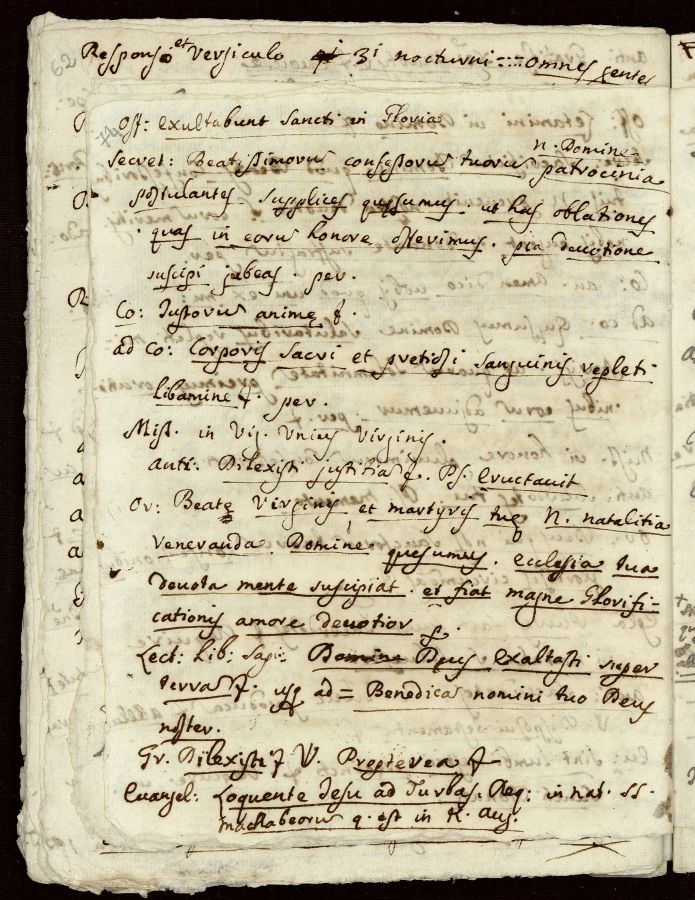 62 Responso et versiculo 3i nocturni :::: omnes gentes
74 Off: exultabunt Sancti in Gloria
N. Domine
Secret: Beatissimoru confessoru tuoru patrocinia
postulantes supplices quesumus. ut has oblationes
quas in eoru honore offerimus. pia devotione
suscipi jubeas. per.
Co: Justoru anime
ad Co: Corporis Sacri et pretiosi Sanguinis repleti
libamine. per.
Miss. in Vig. Unius Virginis.
Anti: Dilexisti justitia. Ps. Eructavit
Or: Beate Virginis et martyris tue N. natalitia
veneranda. Domine quesumus. ecclesia tua
devota mente suscipiat. et fiat magne Glorifi-
cationis amore devotior
Lect: Lib: Sapi: Domine Deus exaltasti super
terra usq ad = Benedica nomini tuo Deus
noster.
Gr. Dilexisti V. Propterea
Evangel: Loquente Jesu ad Turbas. Req: in nat. SS.
Machabeoru q. est in K. Aug.